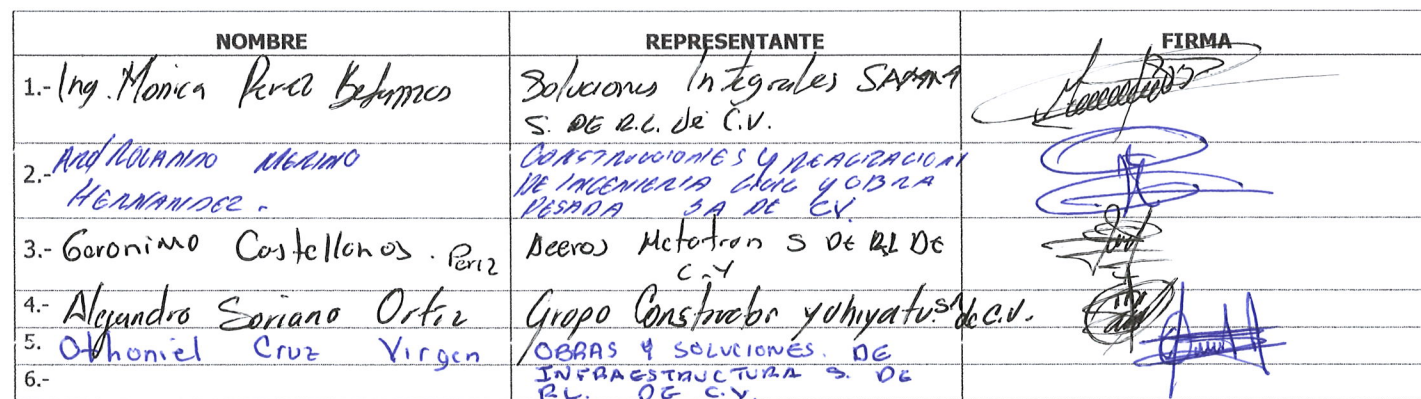 NOMBRE REPRESENTANTE FIRMA
1.- Ing. Monica Perez Soluciones Integrales
S. DE R.L. de C.V.
2.- ROLANDO MERINO CONSTRUCCIONES Y REALIZACION
HERNANDEZ. DE INGENIERIA CIVIL Y OBRA
PESADA SA DE CV.
3.- Geronimo Castellanos. Perez Aceros Metatron S DE RL DE
C.V
4.- Alejandro Soriano Ortiz Grupo Constructor yohiyatu SA de C.V.
5. Othoniel Cruz Virgen OBRAS Y SOLUCIONES. DE
6.- INFRAESTRUCTURA S. DE
RL. DE C.V.